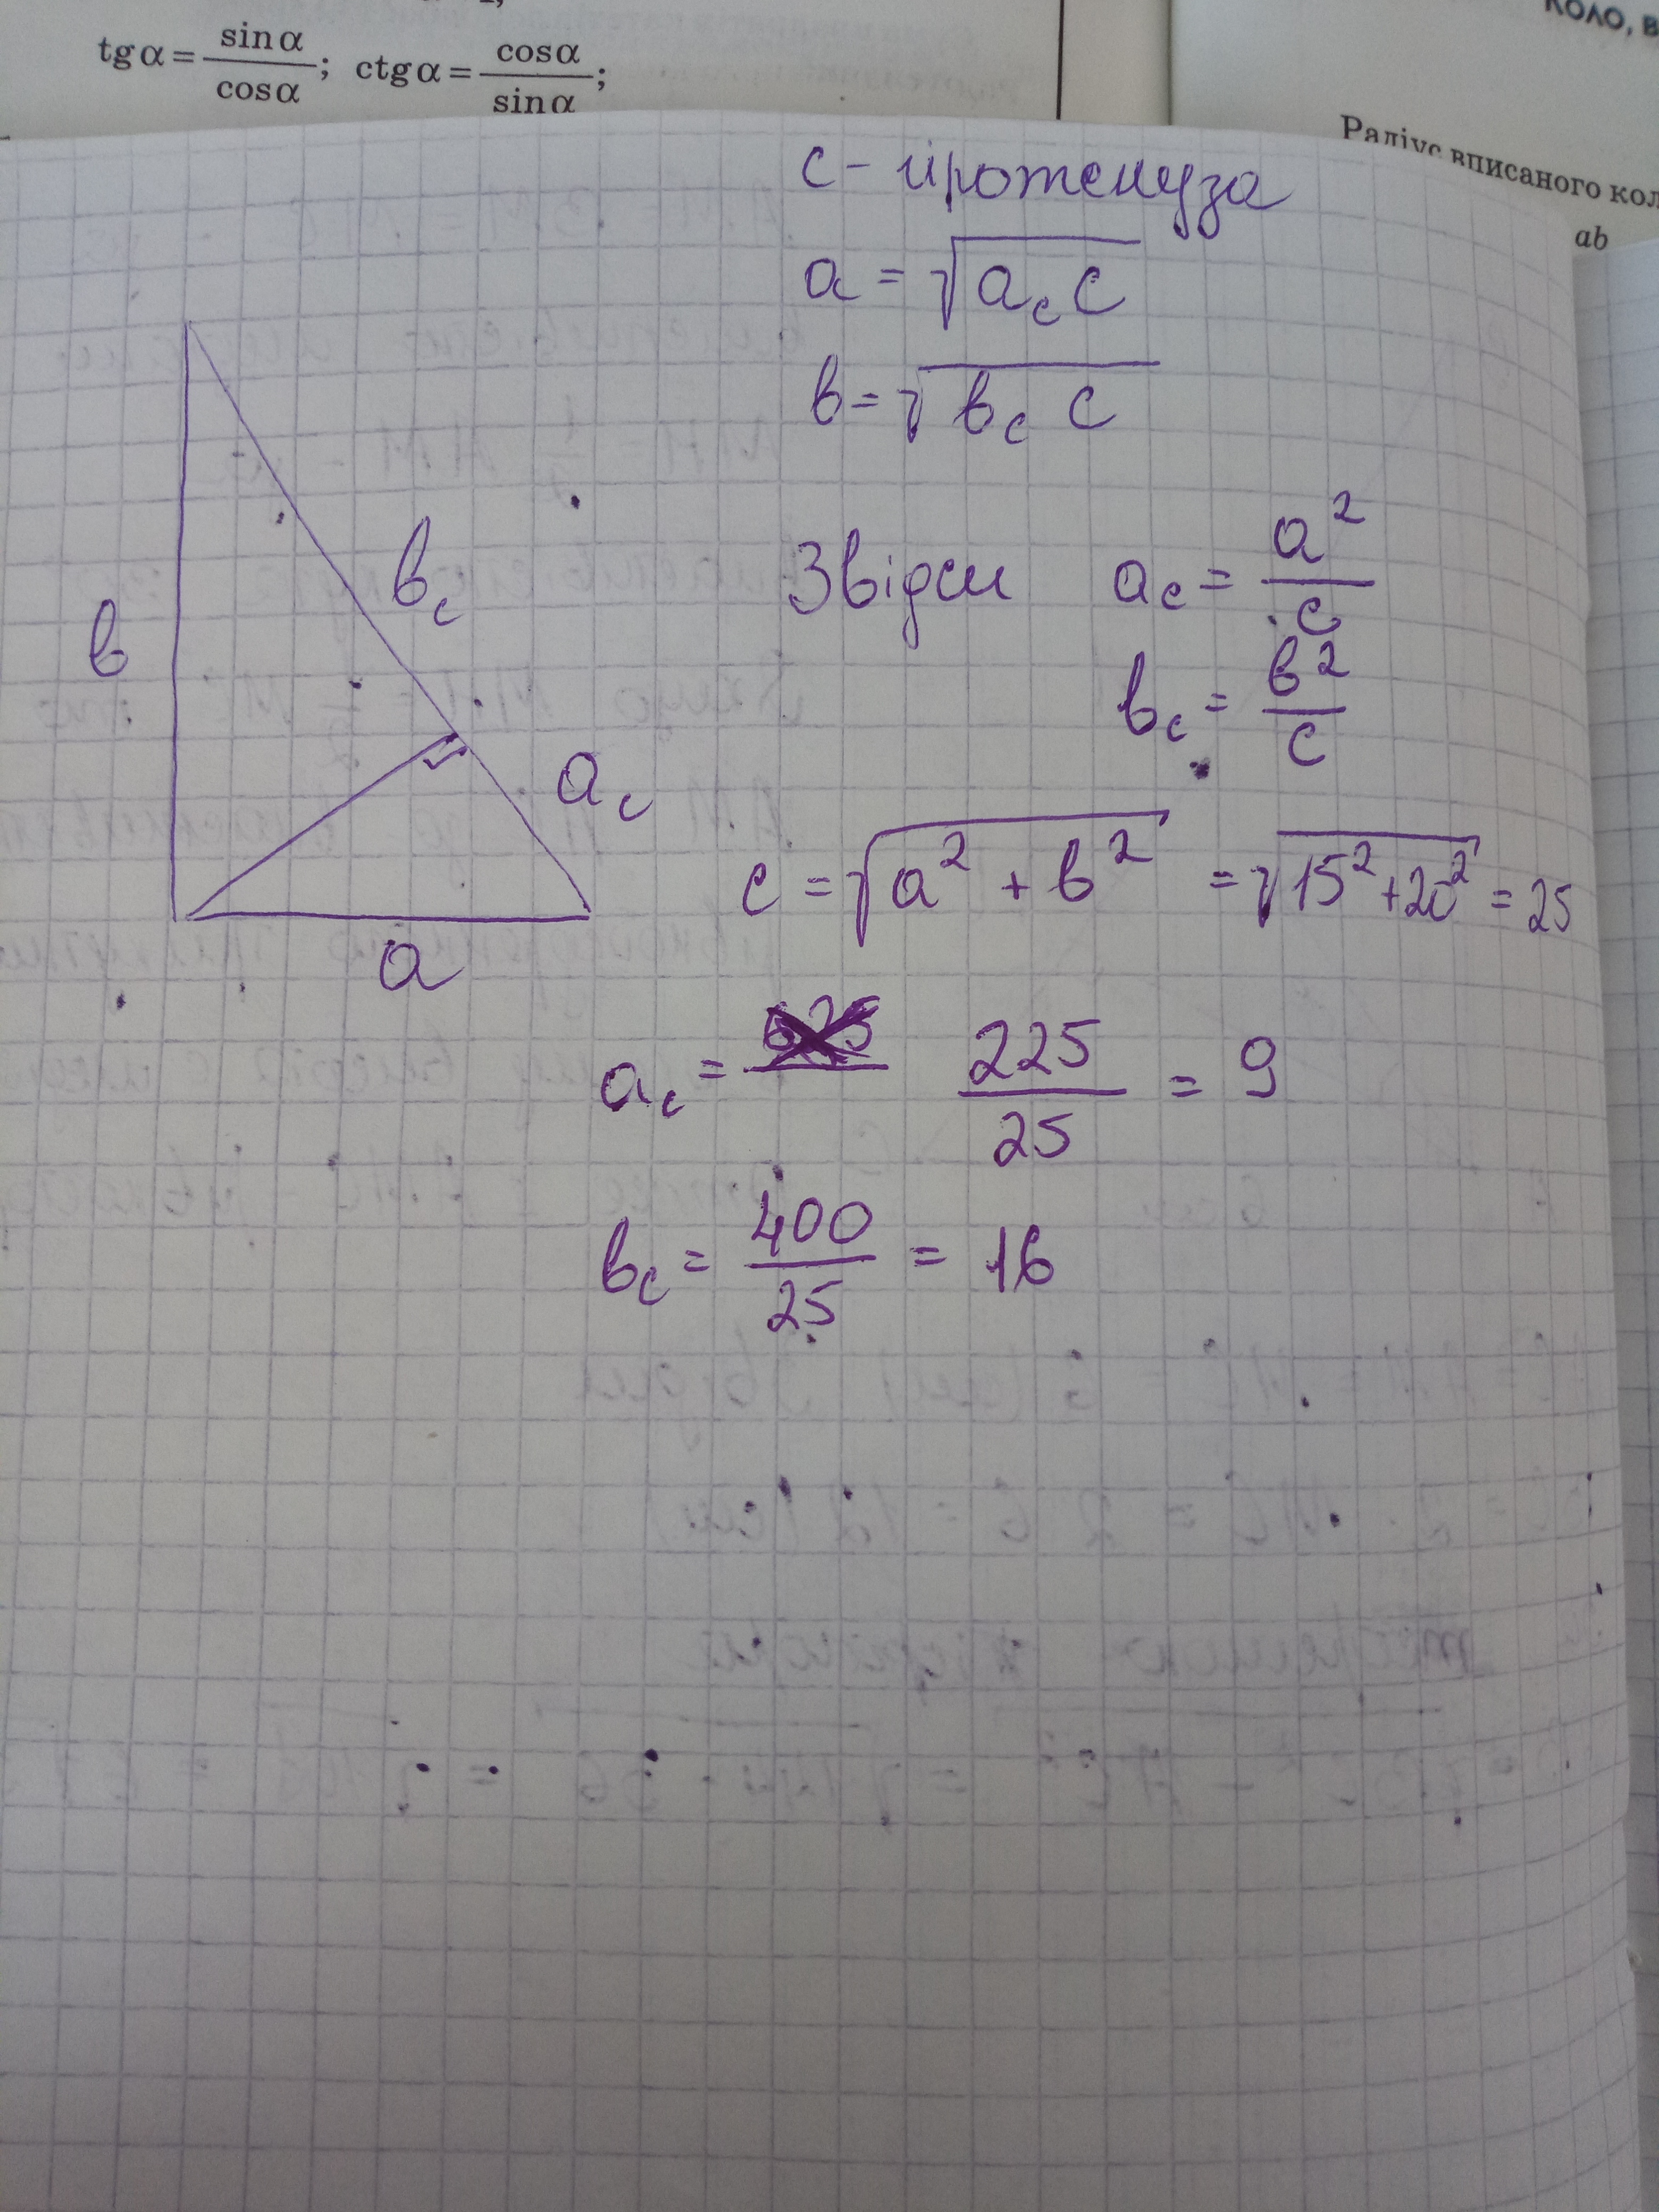 tg α = sin α / cos α ; ctg α = cos α / sin α ;
КОЛО,
Радіус вписаного
ab
c - гіпотенуза
a = √(a_c c)
в = √(в_c c)
в
в_c
a_c
a
Звідси a_c = a² / c
в_c = в² / c
c = √(a² + в²) = √(15² + 20²) = 25
a_c = 225 / 25 = 9
в_c = 400 / 25 = 16